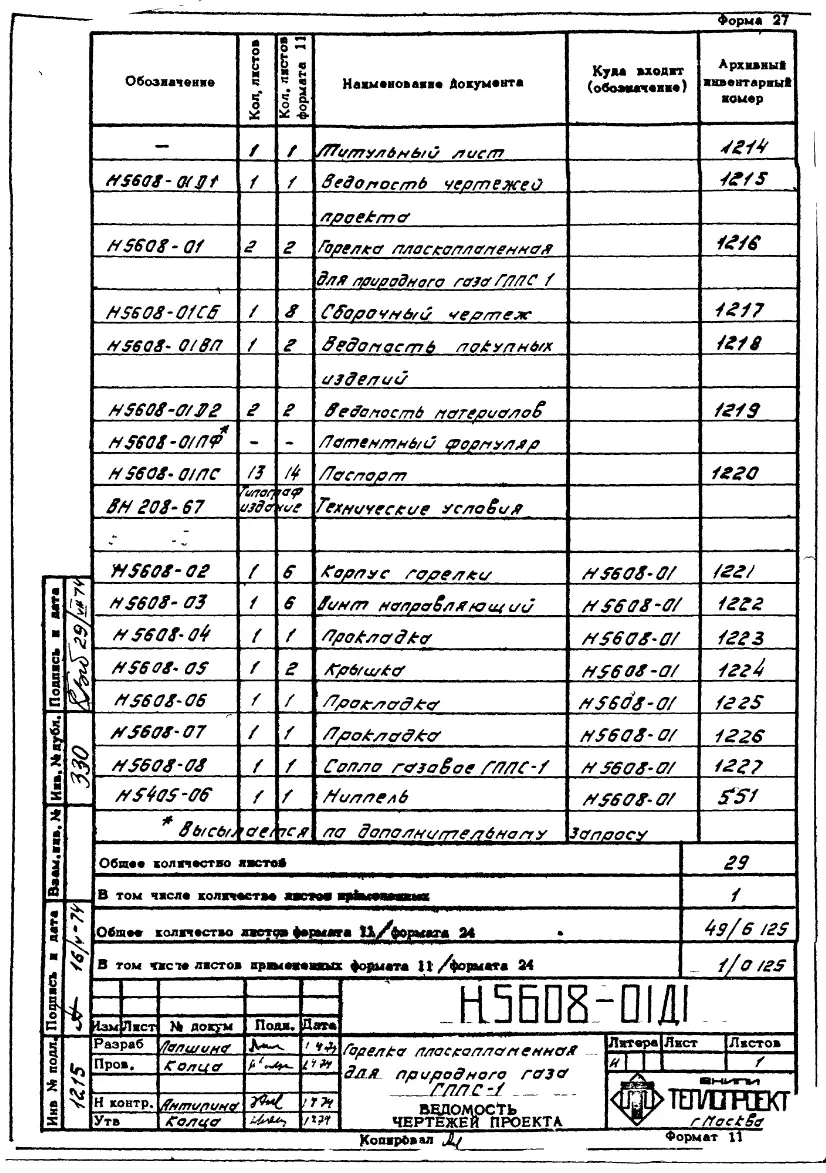 Форма 27
Обозначение Кол. листов Кол. листов формата 11 Наименование Документа Куда входит (обозначение) Архивный инвентарный номер
— 1 1 Титульный лист 1214
Н5608-01Д1 1 1 Ведомость чертежей 1215
проекта
Н5608-01 2 2 Горелка плоскопламенная 1216
для природного газа ГППС 1
Н5608-01СБ 1 8 Сборочный чертеж 1217
Н5608-01ВП 1 2 Ведомость покупных 1218
изделий
Н5608-01Д2 2 2 Ведомость материалов 1219
Н5608-01ПФ* - - Патентный формуляр
Н5608-01ПС 13 14 Паспорт 1220
ВН 208-67 Типограф издание Технические условия
Н5608-02 1 6 Корпус горелки Н5608-01 1221
Н5608-03 1 6 Винт направляющий Н5608-01 1222
Н5608-04 1 1 Прокладка Н5608-01 1223
Н5608-05 1 2 Крышка Н5608-01 1224
Н5608-06 1 1 Прокладка Н5608-01 1225
Н5608-07 1 1 Прокладка Н5608-01 1226
Н5608-08 1 1 Сопло газовое ГППС-1 Н5608-01 1227
Н5405-06 1 1 Ниппель Н5608-01 551
* Высылается по дополнительному запросу
Общее количество листов 29
В том числе количество листов примененных 1
Общее количество листов формата 11/формата 24 49/6 125
В том числе листов примененных формата 11/формата 24 1/0 125
Подпись и дата 29/VII 74
Инв. № дубл. 330
Взам. инв. №
Подпись и дата 16/V-74
Инв № подл. 1215
Н5608-01Д1
Изм Лист № докум Подп. Дата
Разраб Лапшина
Пров. Копца
Н контр. Антипина
Утв Копца
Горелка плоскопламенная
для природного газа
ГППС-1
ВЕДОМОСТЬ
ЧЕРТЕЖЕЙ ПРОЕКТА
Литера Лист Листов
И 1
ВНИПИ
ТЕПЛОПРОЕКТ
г Москва
Копировал
Формат 11